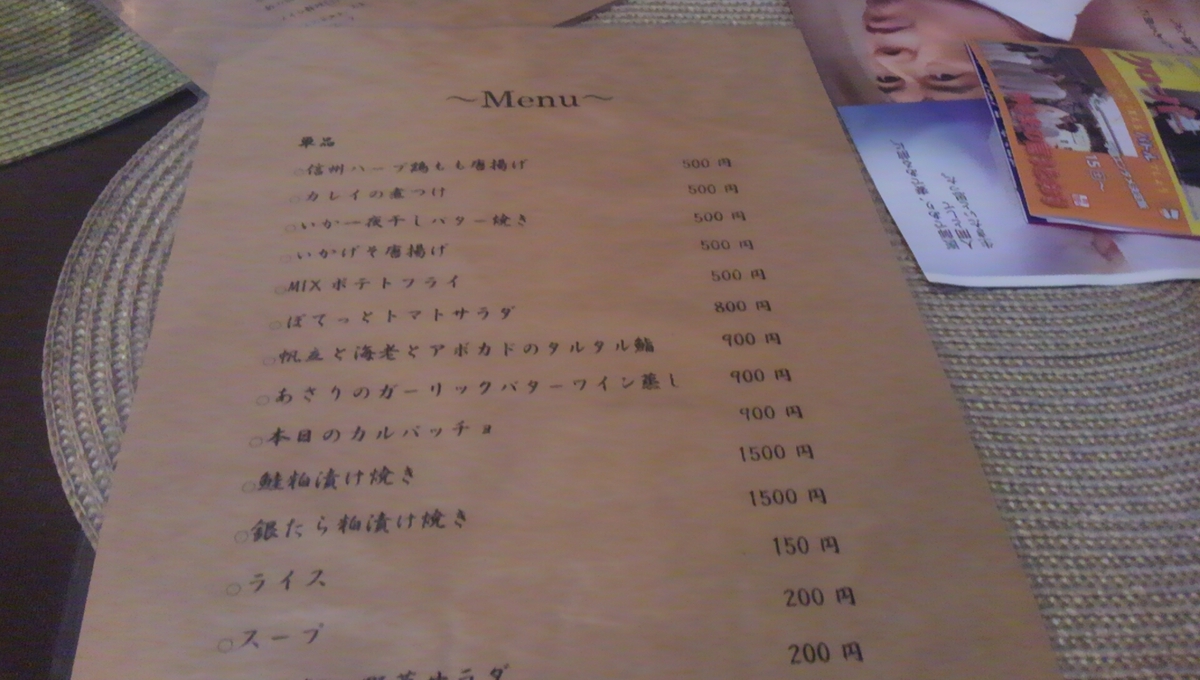 ～Menu～
単品
○信州ハーブ鶏もも唐揚げ 500円
○カレイの煮つけ 500円
○いか一夜干しバター焼き 500円
○いかげそ唐揚げ 500円
○MIXポテトフライ 500円
○ぽてっとトマトサラダ 800円
○帆立と海老とアボカドのタルタル 900円
○あさりのガーリックバターワイン蒸し 900円
○本日のカルパッチョ 900円
○鮭粕漬け焼き 1500円
○銀たら粕漬け焼き 1500円
○ライス 150円
○スープ 200円
野菜サラダ 200円